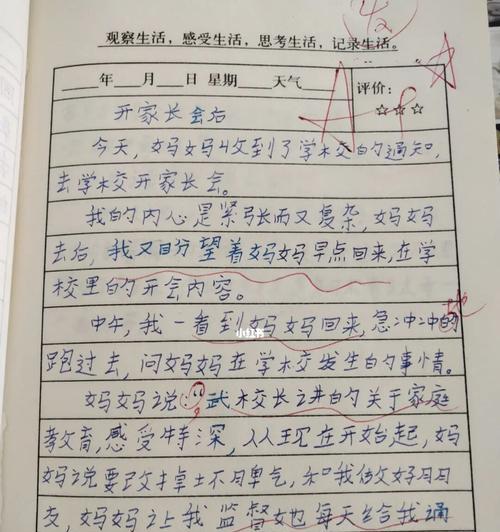 观察生活，感受生活，思考生活，记录生活。
年 月 日 星期 天气
评价：
☆☆☆
开家长会后
今天，妈妈收到了学校的通知，
去学校开家长会。
我的内心是紧张而又复杂，妈妈
去后，我又盼望着妈妈早点回来，在学
校里的开会内容。
地
中午，我一看到妈妈回来，急冲冲的
跑过去，问妈妈在学校发生的事情。
小红书
妈妈说：武校长讲的关于家庭
教育，感受特深，从现在开始起，妈
妈说要改掉土不马气，和我做好习习
交，妈妈让我监督她每天给我